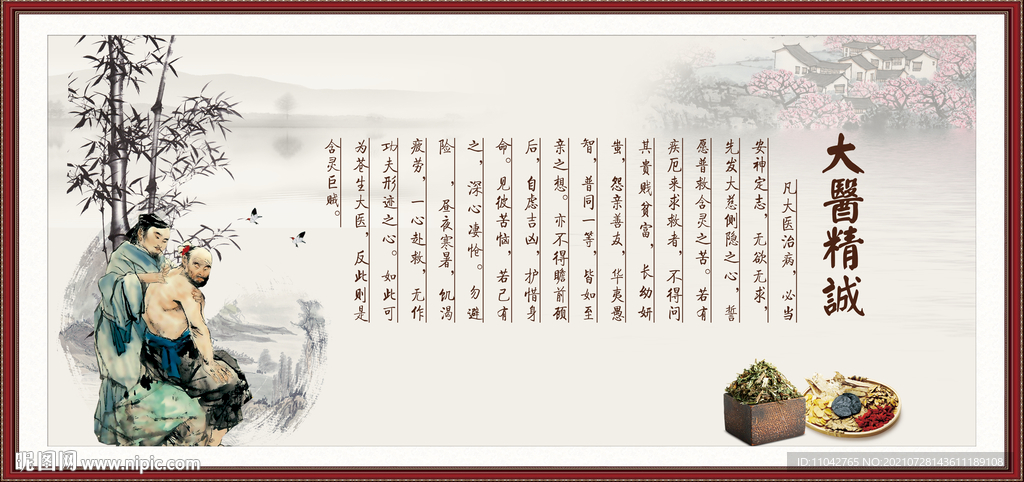 大醫精誠
凡大医治病，必当
安神定志，无欲无求，
先发大慈恻隐之心，誓
愿普救含灵之苦。若有
疾厄来求救者，不得问
其貴贱贫富，长幼妍
蚩，怨亲善友，华夷愚
智，普同一等，皆如至
亲之想。亦不得瞻前顾
后，自虑吉凶，护惜身
命。见彼苦恼，若己有
之，深心凄怆。勿避
险，昼夜寒暑，饥渴
疲劳，一心赴救，无作
功夫形迹之心。如此可
为苍生大医，反此则是
含灵巨贼。
昵图网 www.nipic.com
ID:11042765 NO:20210728143611189108